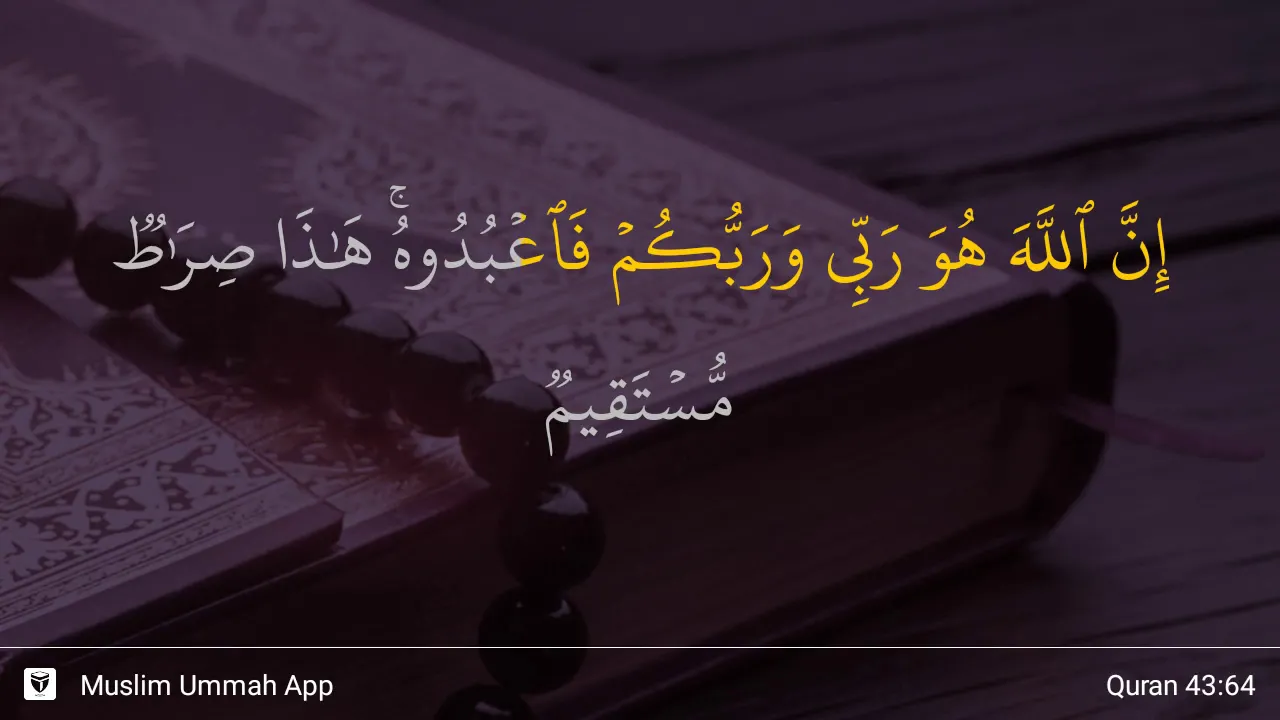 إِنَّ ٱللَّهَ هُوَ رَبِّي وَرَبُّكُمۡ فَٱعۡبُدُوهُۚ هَٰذَا صِرَٰطٞ
مُّسۡتَقِيمٞ
Muslim Ummah App
Quran 43:64